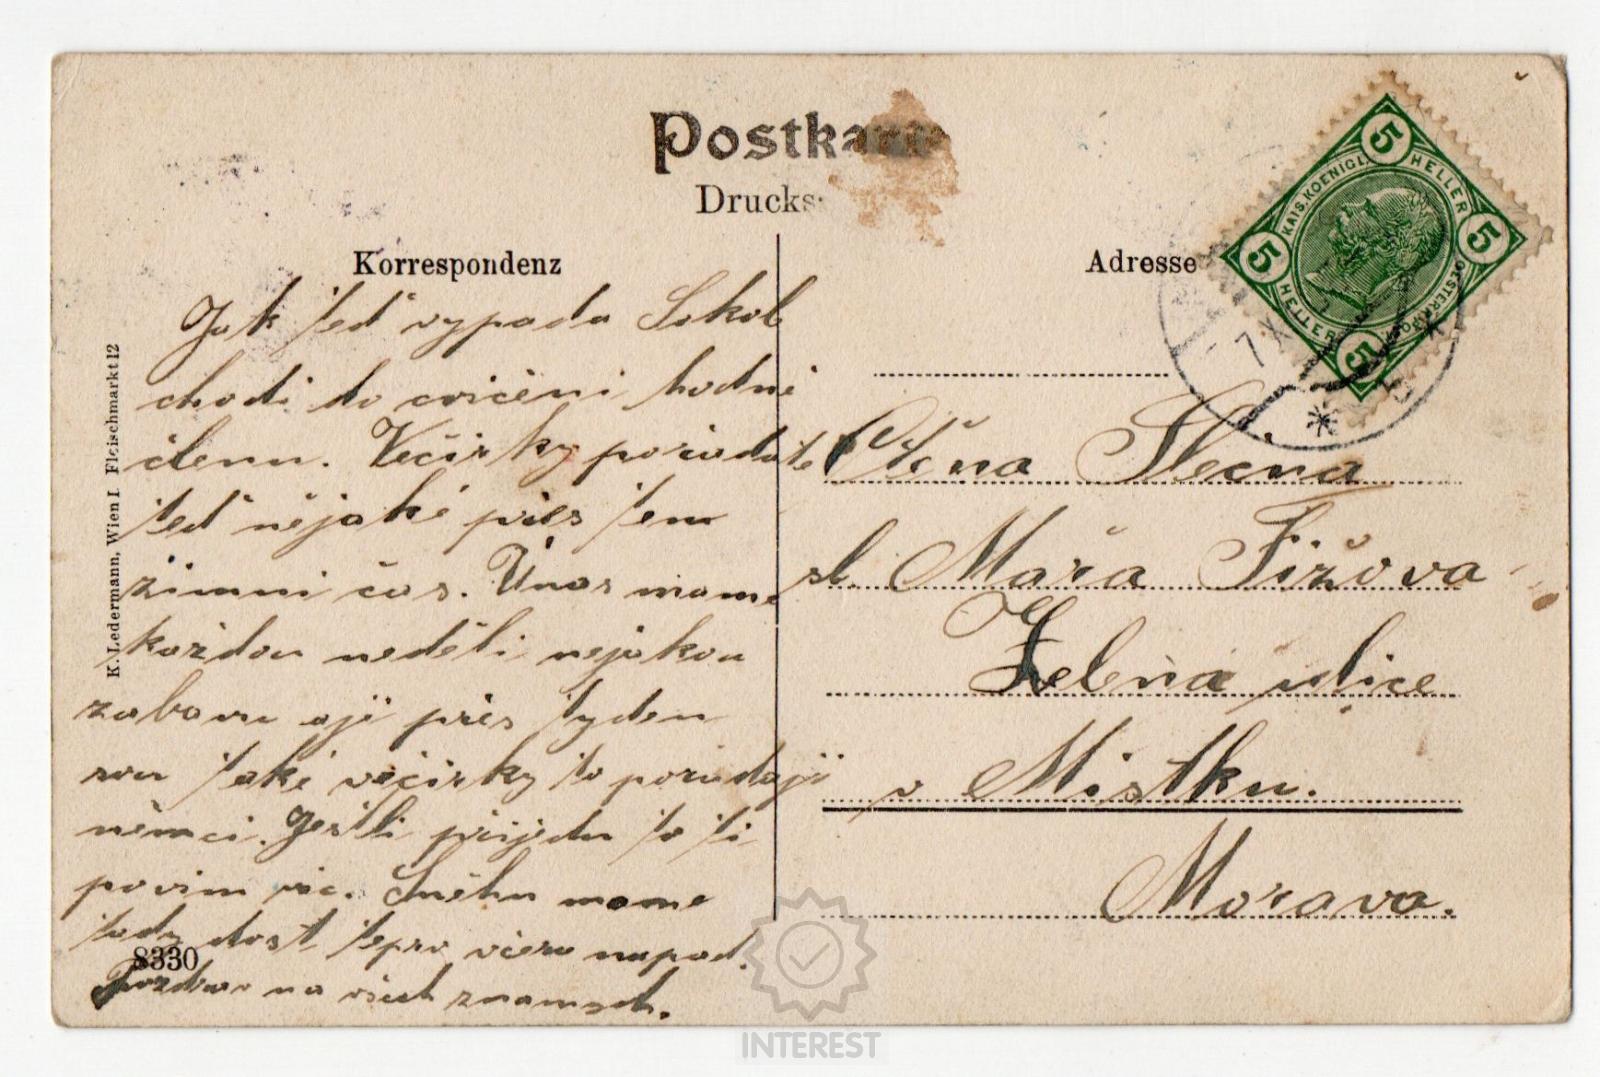 Postka
Drucks
Korrespondenz
Adresse
Jak teď vypada Sokol
chodi do cvičeni hodně
členu. Večirky pořadate
teď nějaké přes tem
zimni čas. Unas mame
každou neděli nejakou
zabavu aji přes tyden
sou také večirky to pořadaji
němci. Jestli přijedu to ti
povim vic. Sněhu mame
tady dost tepro včera napad.
Pozdrav na všech znamych.
8330
K. Ledermann, Wien I Fleischmarkt 12
KAIS. KOENIGL.
5 HELLER 5
5 HELLER 5
7 X
Ctěna Slečna
sl. Mařa Fižova
Zelena ulice
v Mistku.
Morava.
INTEREST